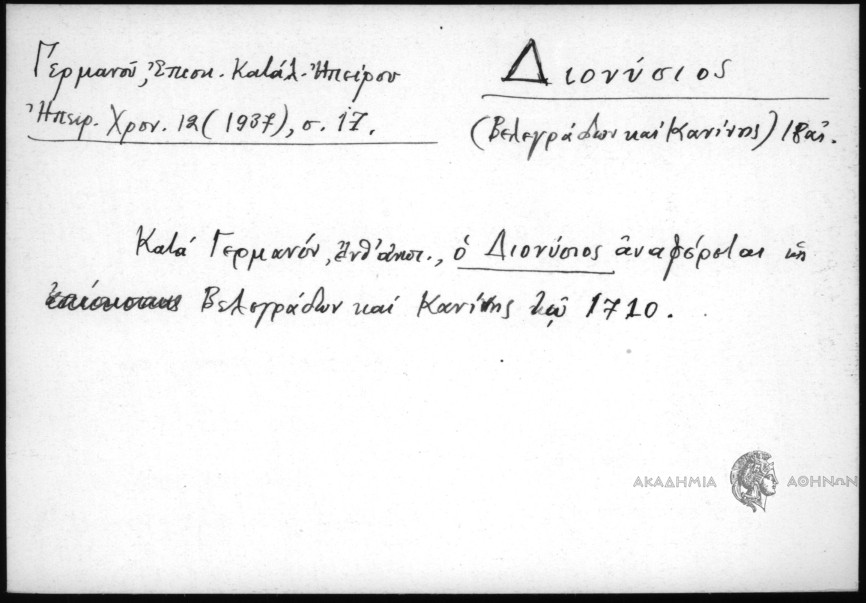 Γερμανοῦ, Ἐπισκ. Κατάλ. Ἠπείρου
Ἠπειρ. Χρον. 12 (1937), σ. 17.
Διονύσιος
(Βελεγράδων καί Κανίνης) 18αἰ.
Κατά Γερμανόν, Ἀνθ' ἀνωτ., ὁ Διονύσιος ἀναφέρεται ὡς
ἐπίσκοπος Βελεγράδων καί Κανίνης τῷ 1710.
ΑΚΑΔΗΜΙΑ ΑΘΗΝΩΝ